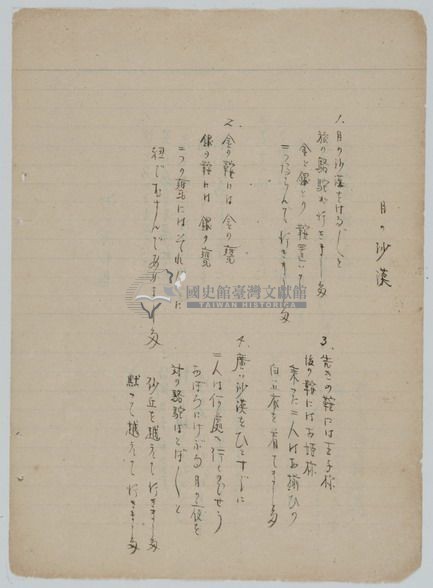 月の沙漠
1. 月の沙漠をはる〴〵と
旅の駱駝が行きました
金と銀との鞍置いて
二つならんで行きました
2. 金の鞍には金の甕
銀の鞍には銀の甕
二つの甕にはそれ〴〵に
紐でむすんでありました
3. 先きの鞍には王子様
後の鞍にはお姫様
乗った二人はお揃ひの
白い衣を着てました
4. 廣い沙漠をひとすぢに
二人は何處へ行くのでせう
おぼろにけぶる月の夜を
対の駱駝はとぼ〳〵と
砂丘を越えて行きました
黙って越えて行きました
國史館臺灣文獻館
TAIWAN HISTORICA